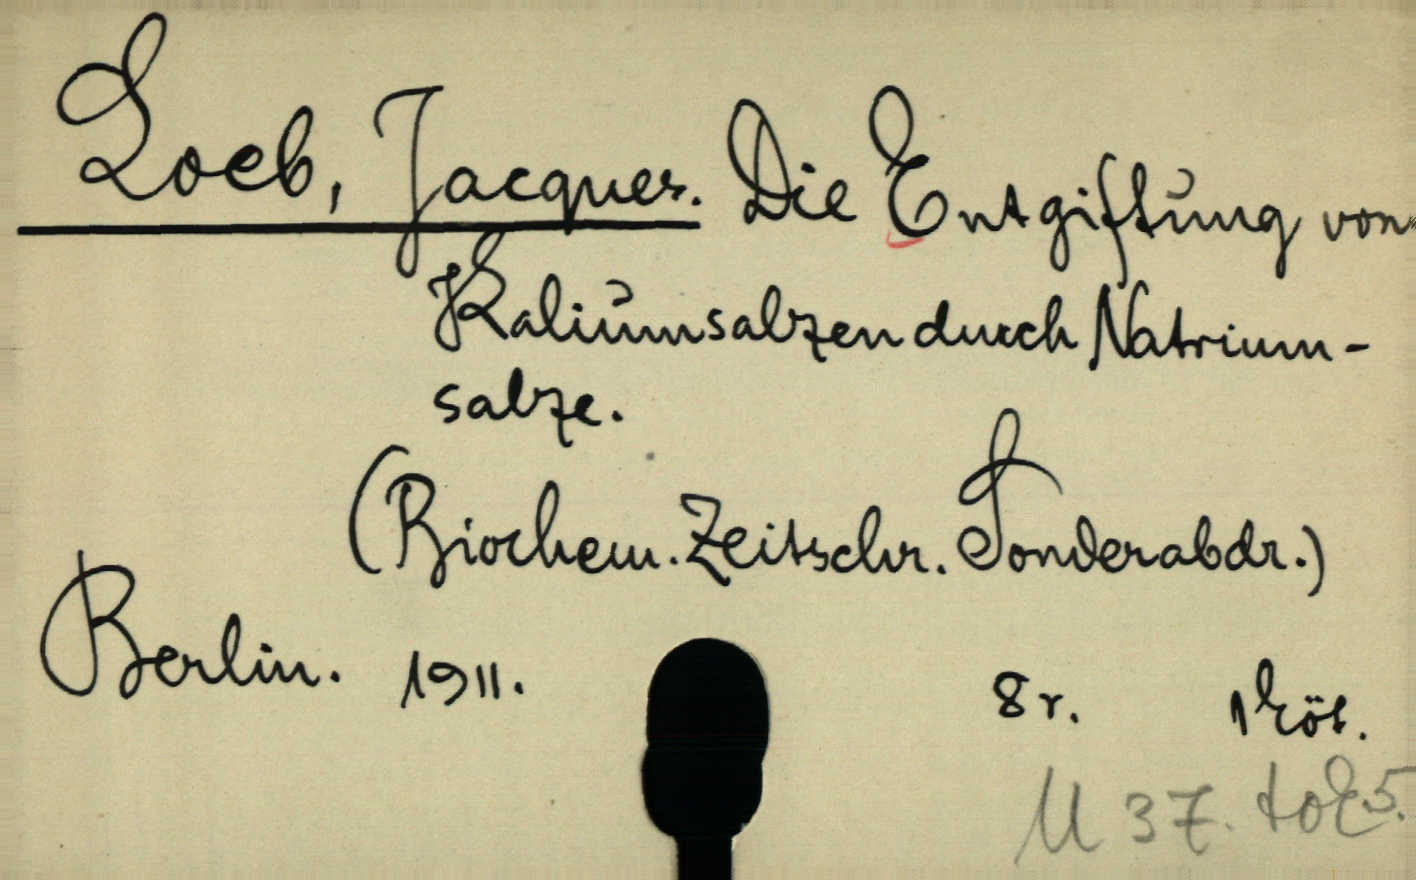 Loeb, Jacques. Die Entgiftung von
Kaliumsalzen durch Natrium-
salze.
(Biochem. Zeitschr. Sonderabdr.)
Berlin. 1911. 8r. 1 köt.
M 37.